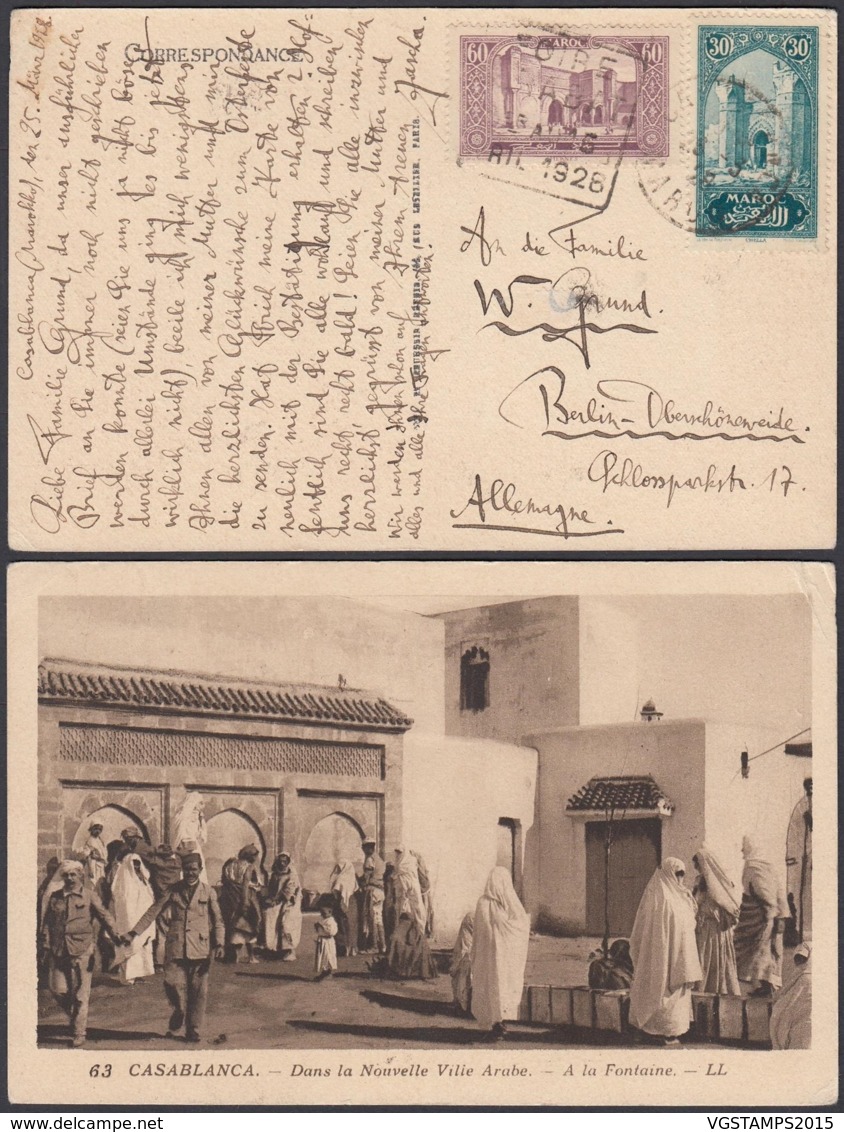 CORRESPONDANCE
Casablanca (Marokko), den 25. März 1928
Liebe Familie Grund, da unser ausführlicher
Brief an Sie immer noch nicht geschrieben
werden konnte (seien Sie uns ja nicht böse,
durch allerlei Umstände ging es bis jetzt
wirklich nicht), beeile ich mich wenigstens
Ihnen allen von meiner Mutter und mir
die herzlichsten Glückwünsche zum Osterfeste
zu senden. Hat Erich meine Karte von
neulich mit der Bestätigung erhalten? Hof-
fentlich sind Sie alle wohlauf und schreiben
uns recht recht bald! Seien Sie alle inzwischen
herzlichst gegrüsst von meiner Mutter und
Ihrem treuen Jascha.
Wir werden Ihnen schon auf
alles und alle Ihre Fragen antworten!
60 MAROC 60
30 30
MAROC
FOIRE
RIL 1928
An die Familie
W. Grund.
Berlin-Oberschöneweide.
Schlossparkstr. 17.
Allemagne.
PARIS.
63 CASABLANCA. — Dans la Nouvelle Ville Arabe. — A la Fontaine. — LL
VGSTAMPS2015